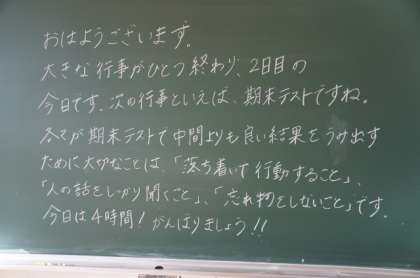 おはようございます。
大きな行事がひとつ終わり、2日目の
今日です。次の行事といえば、期末テストですね。
各々が期末テストで中間よりも良い結果をうみ出す
ために大切なことは、「落ち着いて行動すること」、
「人の話をしっかり聞くこと」、「忘れ物をしないこと」です。
今日は4時間！がんばりましょう！！